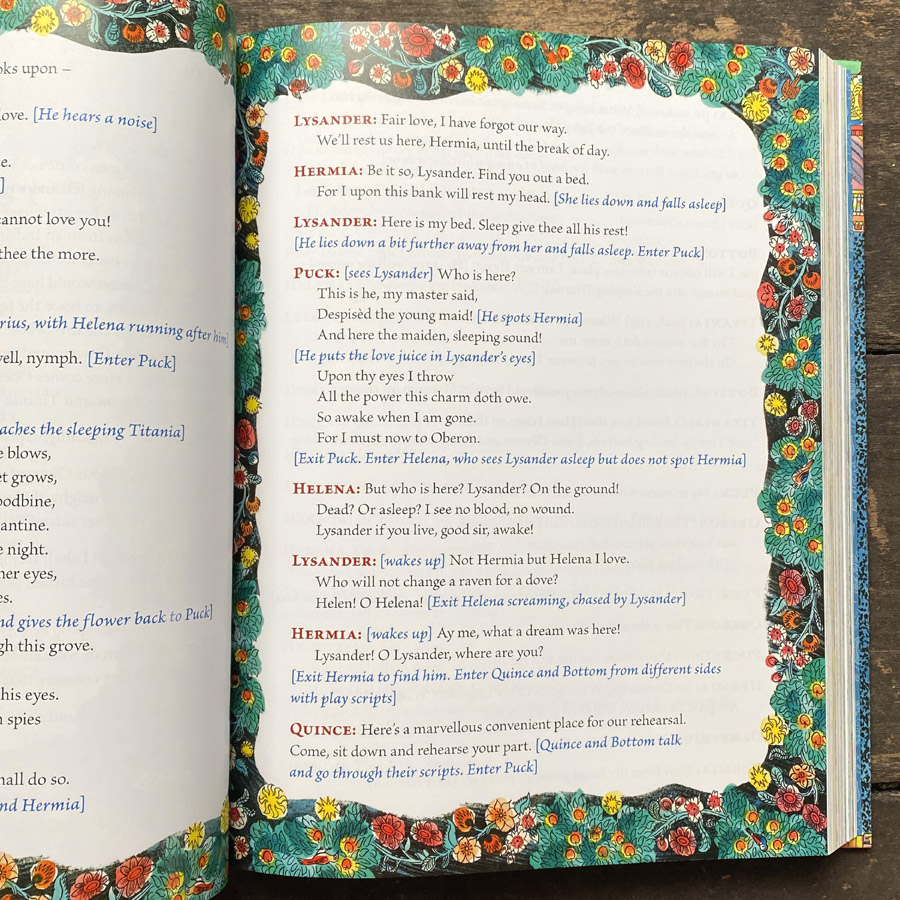 upon –
love. [He hears a noise]
e.
]
cannot love you!
thee the more.
with Helena running after him]
nymph. [Enter Puck]
the sleeping Titania]
blows,
grows,
night.
eyes,
gives the flower back to Puck]
this grove.
his eyes.
spies
do so.
Hermia]
LYSANDER: Fair love, I have forgot our way.
We'll rest us here, Hermia, until the break of day.
HERMIA: Be it so, Lysander. Find you out a bed.
For I upon this bank will rest my head. [She lies down and falls asleep]
LYSANDER: Here is my bed. Sleep give thee all his rest!
[He lies down a bit further away from her and falls asleep. Enter Puck]
PUCK: [sees Lysander] Who is here?
This is he, my master said,
Despisèd the young maid! [He spots Hermia]
And here the maiden, sleeping sound!
[He puts the love juice in Lysander's eyes]
Upon thy eyes I throw
All the power this charm doth owe.
So awake when I am gone.
For I must now to Oberon.
[Exit Puck. Enter Helena, who sees Lysander asleep but does not spot Hermia]
HELENA: But who is here? Lysander? On the ground!
Dead? Or asleep? I see no blood, no wound.
Lysander if you live, good sir, awake!
LYSANDER: [wakes up] Not Hermia but Helena I love.
Who will not change a raven for a dove?
Helen! O Helena! [Exit Helena screaming, chased by Lysander]
HERMIA: [wakes up] Ay me, what a dream was here!
Lysander! O Lysander, where are you?
[Exit Hermia to find him. Enter Quince and Bottom from different sides
with play scripts]
QUINCE: Here's a marvellous convenient place for our rehearsal.
Come, sit down and rehearse your part. [Quince and Bottom talk
and go through their scripts. Enter Puck]